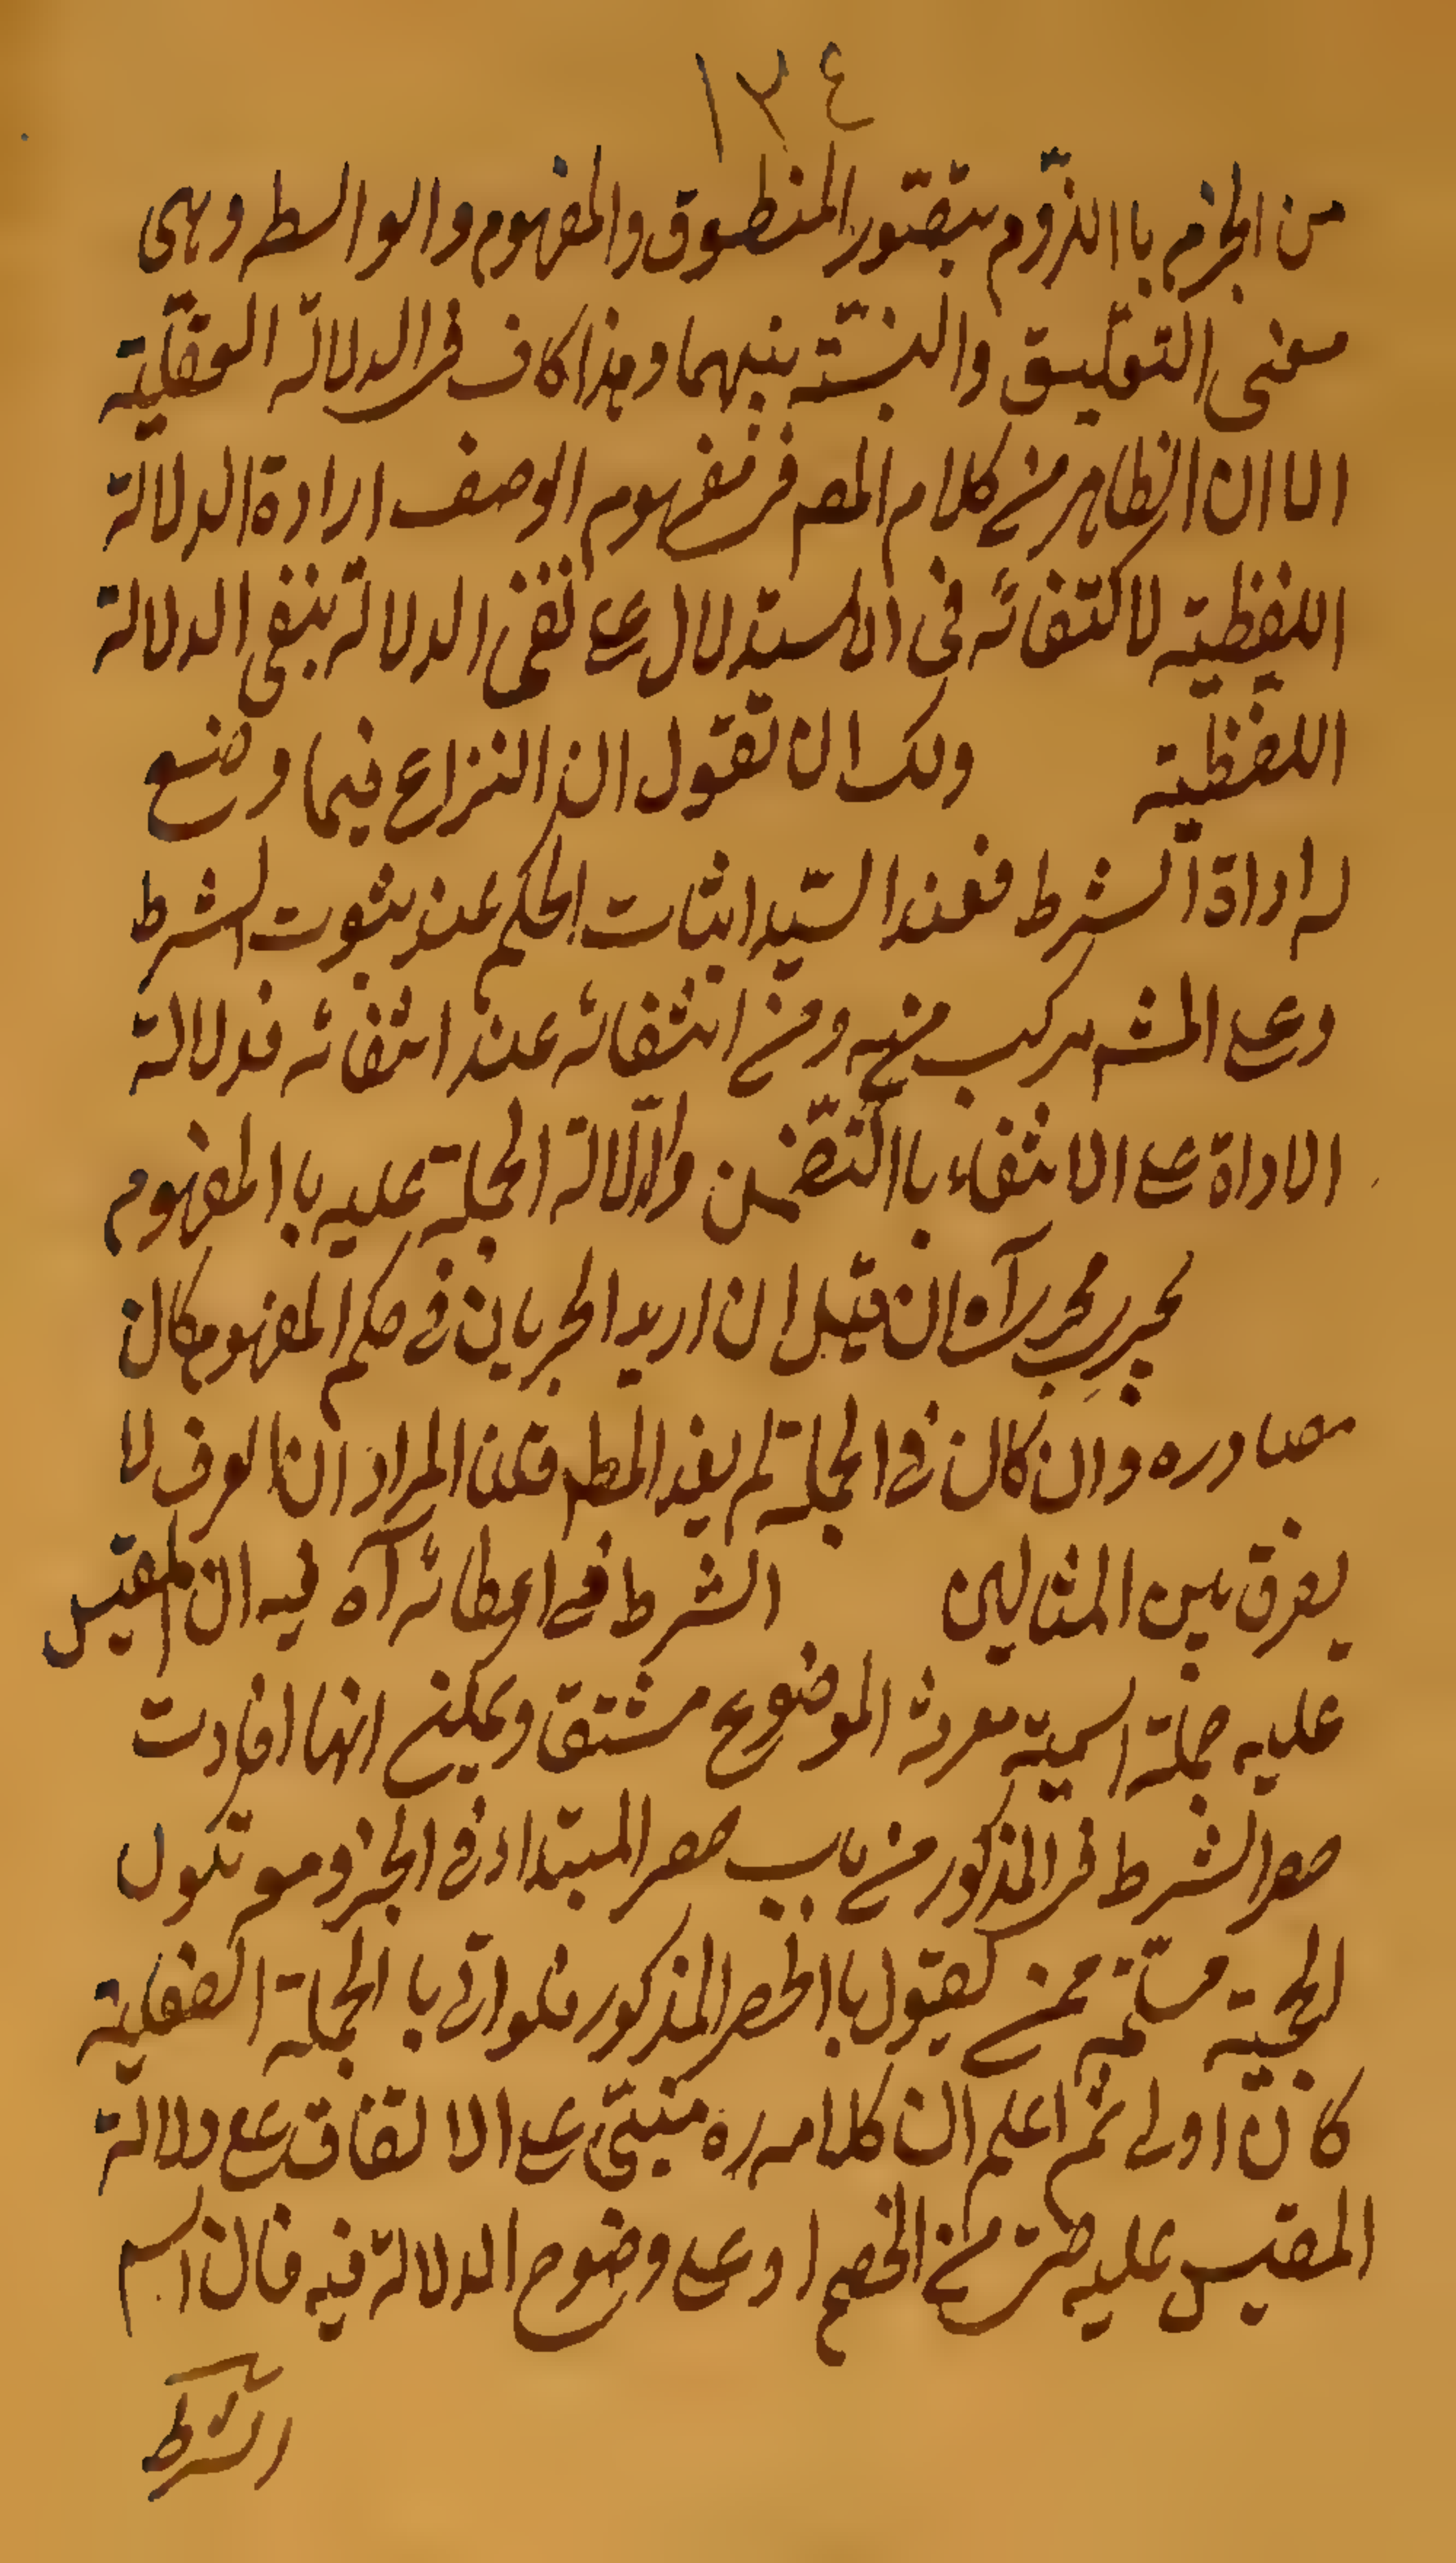 ١٣٤
من الجزم باللزوم بتصور المنطوق والمفهوم والواسطه وهى
معنى التعليق والنسبة بينهما وهذا كاف فى الدلالة العقلية
الا ان الظاهر من كلام المصم فى مفهوم الوصف ارادة الدلالة
اللفظية لاكتفائه فى الاستدلال على نفى الدلالة بنفى الدلالة
اللفظية ولك ان تقول ان النزاع فيما وضع
له اداة الشرط فعند السيد اثبات الحكم عند ثبوت الشرط
وعلى المشه مركب منه ومن انتفائه عند انتفائه فدلالة
الاداة على الانتفاء باالتضمن ودلالة الجملة عليه باالمفهوم
يجرى مجرى آه ان قيل ان اريد الجريان فى حكم المفهوم كان
مصادره وان كان فى الجملة لم يفد المطم قلنا المراد ان العرف لا
يفرق بين المثالين الشرط فى اعطائه آه فيه ان المقيس
عليه جملة اسمية معرفة الموضوع مشتقا ويمكن انها افادت
حصر الشرط فى المذكور من باب حصر المبتداء فى الجزء وهو تكون
الحجية مسلمة ممن يقول باالحصر المذكور فلو اتى باالجملة الفعلية
كان اولى ثم اعلم ان كلامه ره مبنى على الاتفاق على دلالة
المقيس عليه حتى من الخصم او على وضوح الدلالة فيه فان اسم
الشرط